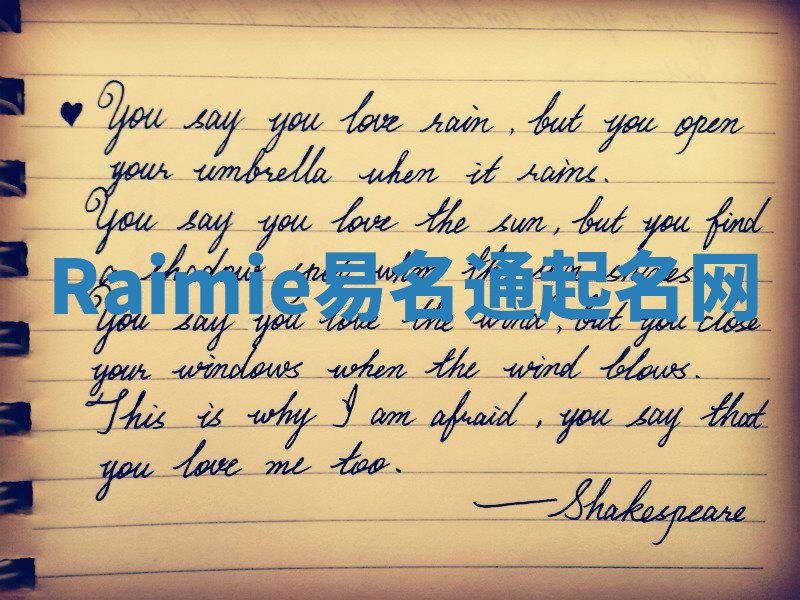 ♥ You say you love rain, but you open
your umbrella when it rains.
You say you love the sun, but you find
a shadow spot when the sun shines.
Raimie易名通起名网
You say you love the wind, but you close
your windows when the wind blows.
This is why I am afraid, you say that
you love me too.
—Shakespeare